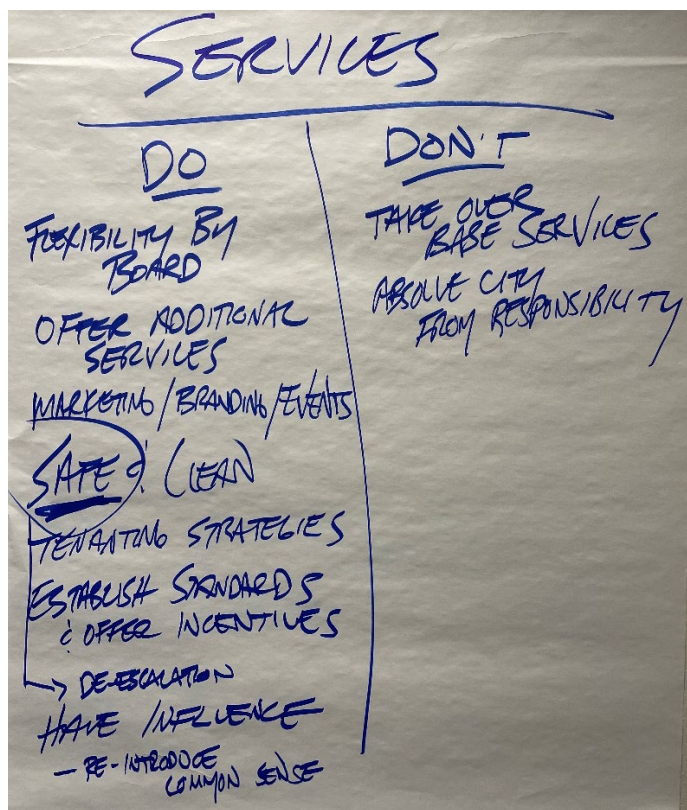 SERVICES
DO
FLEXIBILITY BY
BOARD
OFFER ADDITIONAL
SERVICES
MARKETING/BRANDING/EVENTS
SAFE & CLEAN
TENANTING STRATEGIES
ESTABLISH STANDARDS
& OFFER INCENTIVES
→ DE-ESCALATION
HAVE INFLUENCE
- RE-INTRODUCE
COMMON SENSE
DON'T
TAKE OVER
BASE SERVICES
ABSOLVE CITY
FROM RESPONSIBILITY